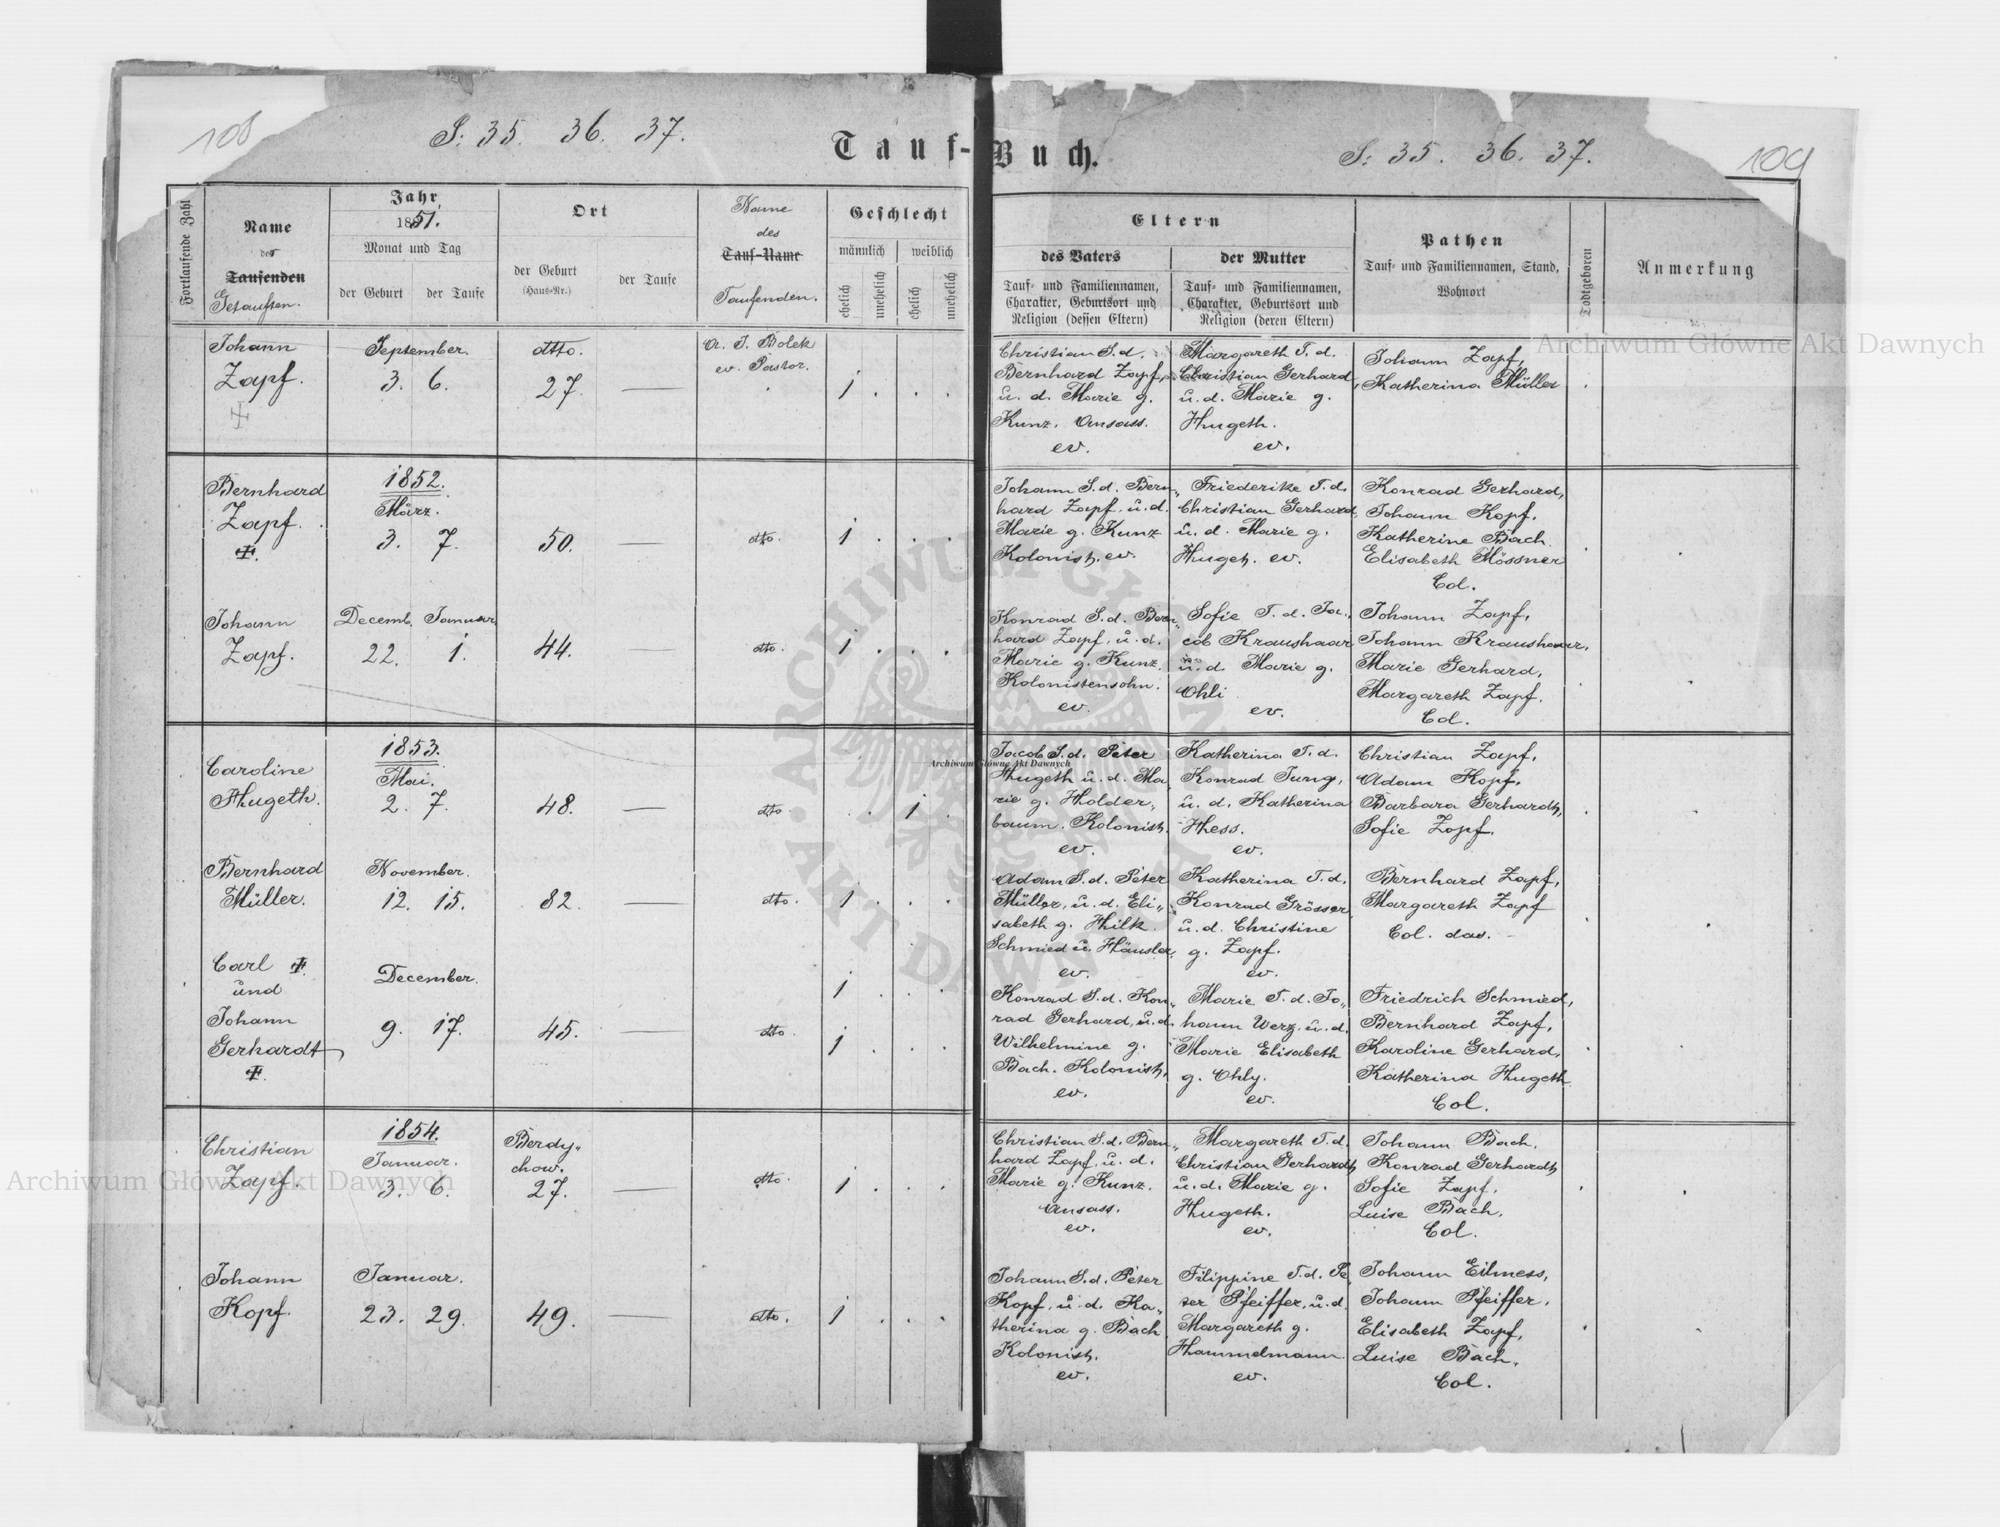 108
S: 35. 36. 37.
Tauf-
Buch.
S: 35. 36. 37.
109
Fortlaufende Zahl
Name
des
Taufenden
Getauften.
Jahr
1851.
Monat und Tag
der Geburt
der Taufe
Ort
der Geburt
(Haus-Nr.)
der Taufe
Name
des
Tauf-Name
Taufenden.
Geschlecht
männlich
weiblich
ehelich
unehelich
ehelich
unehelich
Eltern
des Vaters
Tauf- und Familiennamen,
Charakter, Geburtsort und
Religion (dessen Eltern)
der Mutter
Tauf- und Familiennamen,
Charakter, Geburtsort und
Religion (deren Eltern)
Pathen
Tauf- und Familiennamen, Stand,
Wohnort
Todtgeboren
Anmerkung
Johann
Zapf.
September.
3. 6.
dtto.
27. —
A. J. Bolek
ev. Pastor.
1 . . .
Christian S. d.
Bernhard Zapf,
u. d. Marie g.
Kunz. Ansass.
ev.
Margareth T. d.
Christian Gerhard,
u. d. Marie g.
Hugeth.
ev.
Johann Zapf,
Katherina Müller
Bernhard
Zapf.
1852.
März.
3. 7.
50. —
dto.
1 . . .
Johann S. d. Bern„
hard Zapf. u. d.
Marie g. Kunz
Kolonist. ev.
Friederike T. d.
Christian Gerhard,
u. d. Marie g.
Huget. ev.
Konrad Gerhard,
Johann Kopf,
Katherine Bach
Elisabeth Mössner
Col.
Johann
Zapf.
Decemb. Januar
22. 1.
44. —
dto.
1 . . .
Konrad S. d. Bern„
hard Zapf, u. d.
Marie g. Kunz.
Kolonistensohn.
ev.
Sofie T. d. Ja„
cob Kraushaar
u. d. Marie g.
Ohli
ev.
Johann Zapf,
Johann Kraushaar,
Marie Gerhard,
Margareth Zapf.
Col.
Caroline
Hugeth.
1853.
Mai.
2. 7.
48. —
dto.
. . 1 .
Jacob S. d. Peter
Hugeth u. d. Ma
rie g. Holder„
baum. Kolonist.
ev.
Katherina T. d.
Konrad Jung,
u. d. Katherina
Hess.
ev.
Christian Zapf,
Adam Kopf,
Barbara Gerhardt,
Sofie Zapf.
Bernhard
Müller.
November.
12. 15.
82. —
dto.
1 . . .
Adam S. d. Peter
Müller, u. d. Eli„
sabeth g. Hilk
Schmied u. Häusler,
ev.
Katherina T. d.
Konrad Grösser
u. d. Christine
g. Zapf.
ev.
Bernhard Zapf,
Margareth Zapf
Col. das.
Carl
und
Johann
Gerhardt
December.
9. 17.
45. —
dto.
1 . . .
1 . . .
Konrad S. d. Kon„
rad Gerhard, u. d.
Wilhelmine g.
Bach. Kolonist,
ev.
Marie T. d. Jo„
hann Werz. u. d.
Marie Elisabeth
g. Ohly.
ev.
Friedrich Schmied,
Bernhard Zapf,
Karoline Gerhard,
Katherina Hugeth
Col.
Christian
Zapf.
1854.
Januar.
3. 6.
Berdy„
chow.
27. —
dto.
1 . . .
Christian S. d. Bern„
hard Zapf, u. d.
Marie g. Kunz.
Ansass.
ev.
Margareth T. d.
Christian Gerhardt,
u. d. Marie g.
Hugeth.
ev.
Johann Bach,
Konrad Gerhardt,
Sofie Zapf,
Luise Bach,
Col.
Johann
Kopf.
Januar.
23. 29.
49. —
dto.
1 . . .
Johann S. d. Peter
Kopf, u. d. Ka„
therina g. Bach
Kolonist.
ev.
Filippine T. d. Pe
ter Pfeiffer, u. d.
Margareth g.
Hammelmann.
ev.
Johann Eilmess,
Johann Pfeiffer,
Elisabeth Zapf,
Luise Bach,
Col.
Archiwum Główne Akt Dawnych
Archiwum Główne Akt Dawnych
Archiwum Główne Akt Dawnych
ARCHIWUM GŁÓWNE AKT DAWNYCH